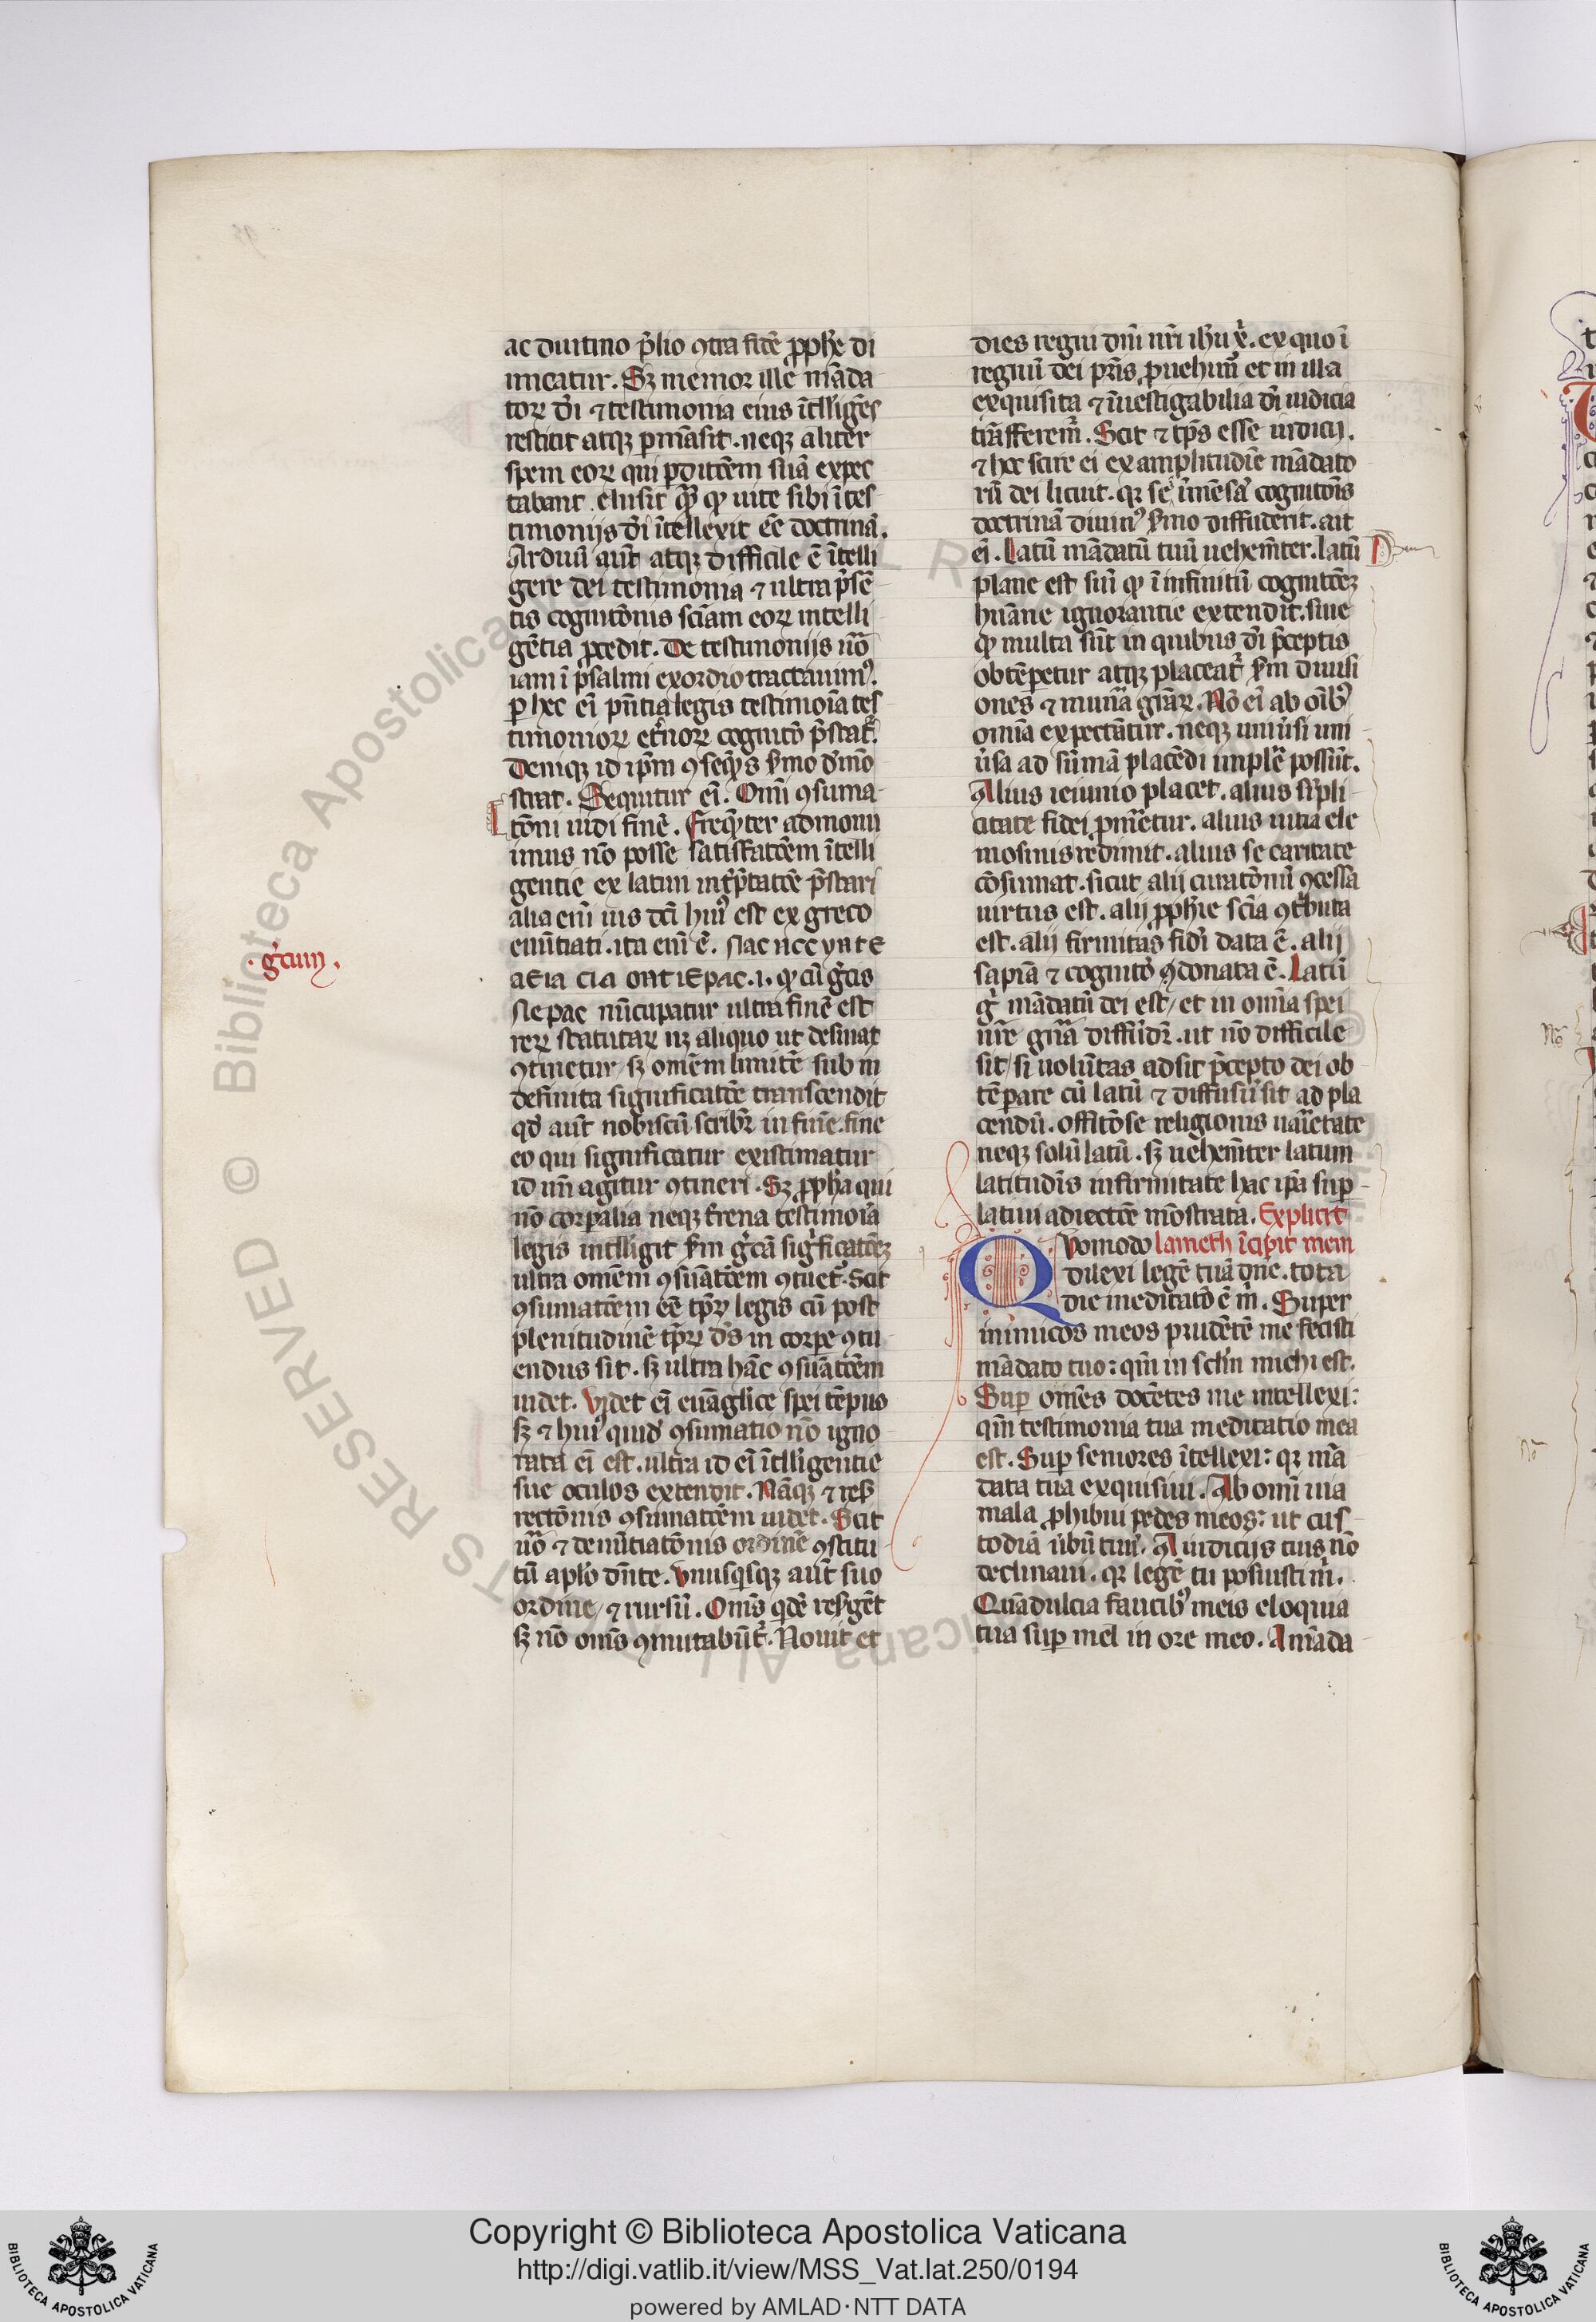 ac diutino p̄lio ꝯtra fidē ꝓph̄e di
micatur. Sꝫ memor ille māda
toꝝ dī ⁊ testimonia eius ītlliḡes
restitit atqꝫ ꝑmāsit. neqꝫ aliter
spem eoꝝ qui ꝑditōem suā expec
tabant elusit
timonijs dī ītellexit eē doctrinā.
Arduū aūt atqꝫ difficile ē ītelli
gere dei testimonia ⁊ ultra p̄sē
tis cognitōnis sciam eoꝝ intelli
gētia ꝓcedit. De testimonijs u̅o
iam ī psalmi exordio tractauimꝰ.
ꝑ hec eī pn̄tia legis testimoīa tes
timonioꝝ et̄noꝝ cognito p̄stat᷑.
Deniqꝫ id ip̄m ꝯseq̄ns s̄mo d̄mō
strat. Sequitur eī. Omī ꝯsuma
tōni uidi finē. Freq̄nter admonu
imus nō posse satisfactōem ītelli
gentie ex latini int̄p̄tatōe p̄stari
alia enī uis dc̄i huiꝰ est ex greco
enūtiati. ita enī ē.
qꝫ cū gͣcis
nūcupatur ultra finē est
reꝝ statutaꝝ
ꝯtinetur / sꝫ omēm limitē sub in
definita significatōe transcendit
qd̓ aūt nobiscū scribit᷑ in fine. fine
eo qui significatur existimatur
id
nō corꝑalia neqꝫ t̄rena testimoīa
legis intlligit s̄m gͣcā sigͥficatōeꝫ
ultra omēm ꝯsūatōem ꝯtuet᷑. Scit
ꝯsumatōem eē tp̄ꝝ legis cū post
plenitudinē tp̄ꝝ d̄s in corꝑe ꝯtu
endus sit. sꝫ ultra hāc ꝯsūatōem
uidet. Videt eī euāglice spei tēpus
sꝫ ⁊ huiꝰ quid ꝯsumatio nō igno
rata eī est. ultra id eī ītlligentie
sue oculos extendit. Nāqꝫ ⁊ res᷑
rectōnis ꝯsumatōem uidet. Scit
u̅o ⁊ denūtiatōnis ordinē ꝯstitu
tū aplo dn̄te. Vnusqisqꝫ aūt suo
ordine / ⁊ rursū. Omīs qͥdē res᷑gēt
sꝫ nō omīs ꝯmutabūt᷑. Nouit et
·gͣcum.
dies regni dn̄i nr̄i ih̄u xp̄i. ex quo ī
regnū dei pr̄is ꝓuehimꝰ et in illa
exquisita ⁊ īuestigabilia dī iudicia
trāsferem᷑. Scit ⁊ tp̄s esse iudicij.
⁊ hec scire ei ex amplitudīe mādato
rū dei licuit. qꝛ se īmēsā cognitōis
doctrinā diuinꝰ s̄mo diffuderit. ait
eī. Latū mādatū tuū uehemēter. latū
plane est suū qꝫ ī infinitū cognitōeꝫ
hūane ignorantie extendit. siue
qꝫ multa sūt in quibus dī p̄ceptis
obtēꝑetur atqꝫ placeat᷑ s̄m diuisi
ones ⁊ munͣa grāꝝ. Nō eī ab oībꝰ
omīa expectātur. neqꝫ uniu̓si uni
u̓sa ad sūmā placēdi implē possūt.
Alius ieiunio placet. alius simpli
citate fidei ꝓm̄etur. alius uitia ele
mosinis redimit. alius se caritate
cōsumat. sicut alij curatōnū ꝯcessa
uirtus est. alij ꝓph̄ie scīa ꝯt̓buta
est. alij firmitas fidī data ē. alij
sapīa ⁊ cognitō ꝯdonata ē. Latū
g̊ mādatū dei est / et in omīa spei
nr̄e gn̄a diffūdit᷑. ut nō difficile
sit / si uolūtas adsit p̄cepto dei ob
tēꝑare cū latū ⁊ diffusū sit ad pla
cendū. offitiōse religionis uaͥetate
neqꝫ solū latū. sꝫ uehemēter latum
latitudīs infirmitate hac ip̄a suꝑ
latiui adiectōe mōstrata. Explicit
Quomodo lameth īcipit mem
dilexi legē tuā dn̄e. tota
die meditatō ē m̄. Super
inimicos meos prudētē me fecisti
mādato tuo: qm̄ in sclm̄ michi est.
Suꝑ omēs docētes me intellexi:
qm̄ testimonia tua meditatio mea
est. Suꝑ seniores ītellexi: qꝛ mā
data tua exquisiui. Ab omī uia
mala ꝓhibui pedes meos: ut cus
todiā u̓bū tuū. A iudicijs tuis nō
declinaui. qꝛ legē tu posuisti m̄.
Quā dulcia faucibꝰ meis eloquia
tua suꝑ mel in ore meo. A māda
Copyright © Biblioteca Apostolica Vaticana
http://digi.vatlib.it/view/MSS_Vat.lat.250/0194
powered by AMLAD·NTT DATA
BIBLIOTECA APOSTOLICA VATICANA
BIBLIOTECA APOSTOLICA VATICANA